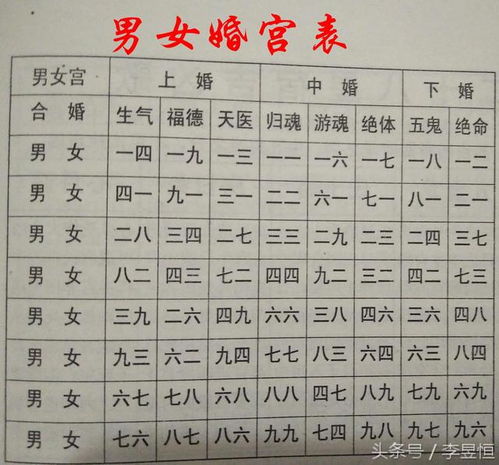 男女婚宫表
男女宫 上 婚 中 婚 下 婚
合 婚 生气 福德 天医 归魂 游魂 绝体 五鬼 绝命
男 女 一四 一九 一三 一一 一六 一七 一八 一二
男 女 四一 九一 三一 二二 六一 七一 八一 二一
男 女 二八 三四 二七 三三 二九 二三 二四 三七
男 女 八二 四三 七二 四四 九二 三二 四二 七三
男 女 三九 二六 四九 六六 三八 四六 三六 四八
男 女 九三 六二 九四 七七 八三 六四 六三 八四
男 女 六七 七八 六八 八八 四七 八九 七九 六九
男 女 七六 八七 八六 九九 七四 九八 九七 九六
头条号 / 李昱恒